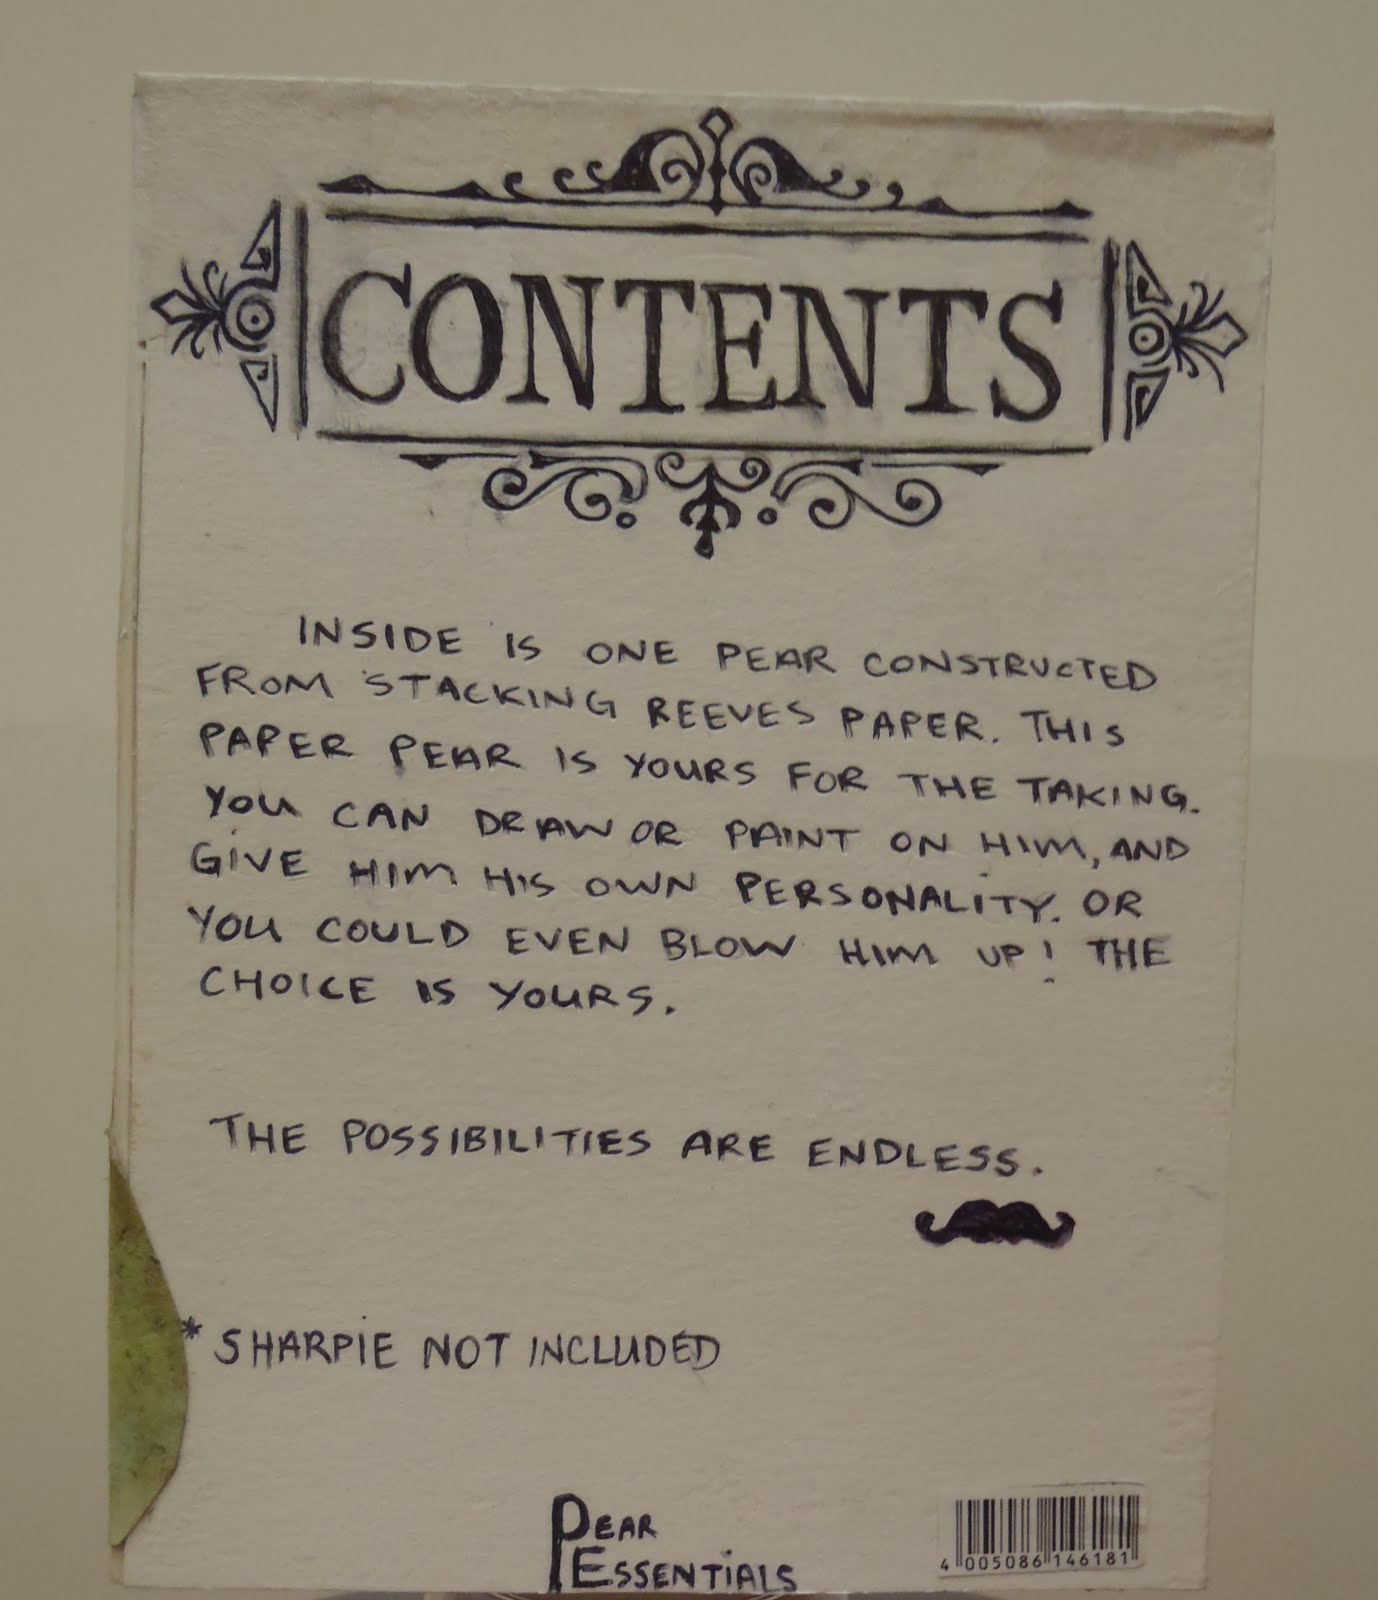 CONTENTS
INSIDE IS ONE PEAR CONSTRUCTED
FROM STACKING REEVES PAPER. THIS
PAPER PEAR IS YOURS FOR THE TAKING.
YOU CAN DRAW OR PAINT ON HIM, AND
GIVE HIM HIS OWN PERSONALITY. OR
YOU COULD EVEN BLOW HIM UP! THE
CHOICE IS YOURS.
THE POSSIBILITIES ARE ENDLESS.
* SHARPIE NOT INCLUDED
PEAR
ESSENTIALS
4 005086 146181